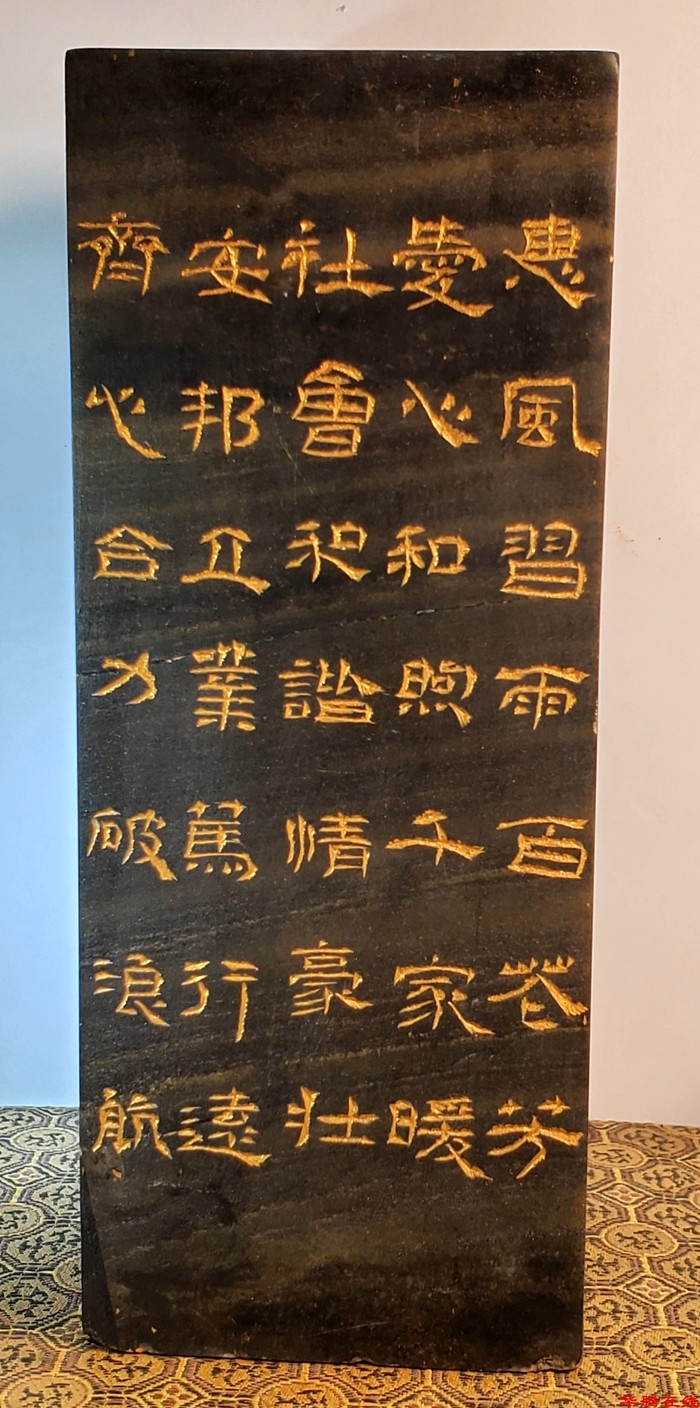 惠風習雨百花芳
愛心和煦千家暖
社會和諧情豪壯
安邦立業萬行遠
齊心合力破浪航
华腾在线